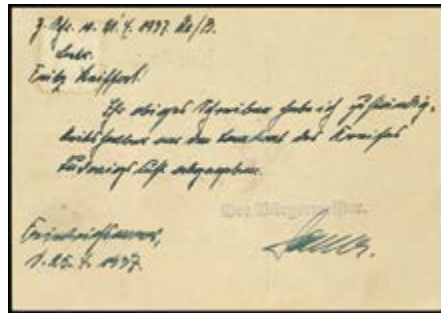 z. Schr. v. 21.4.1937. Re/B.
betr.
Fritz Seiffert.
Ihr obiges Schreiben habe ich zuständig-
keitshalber an den Landrat des Kreises
Ludwigslust abgegeben.
Der Bürgermeister.
d. 25.4.1937.